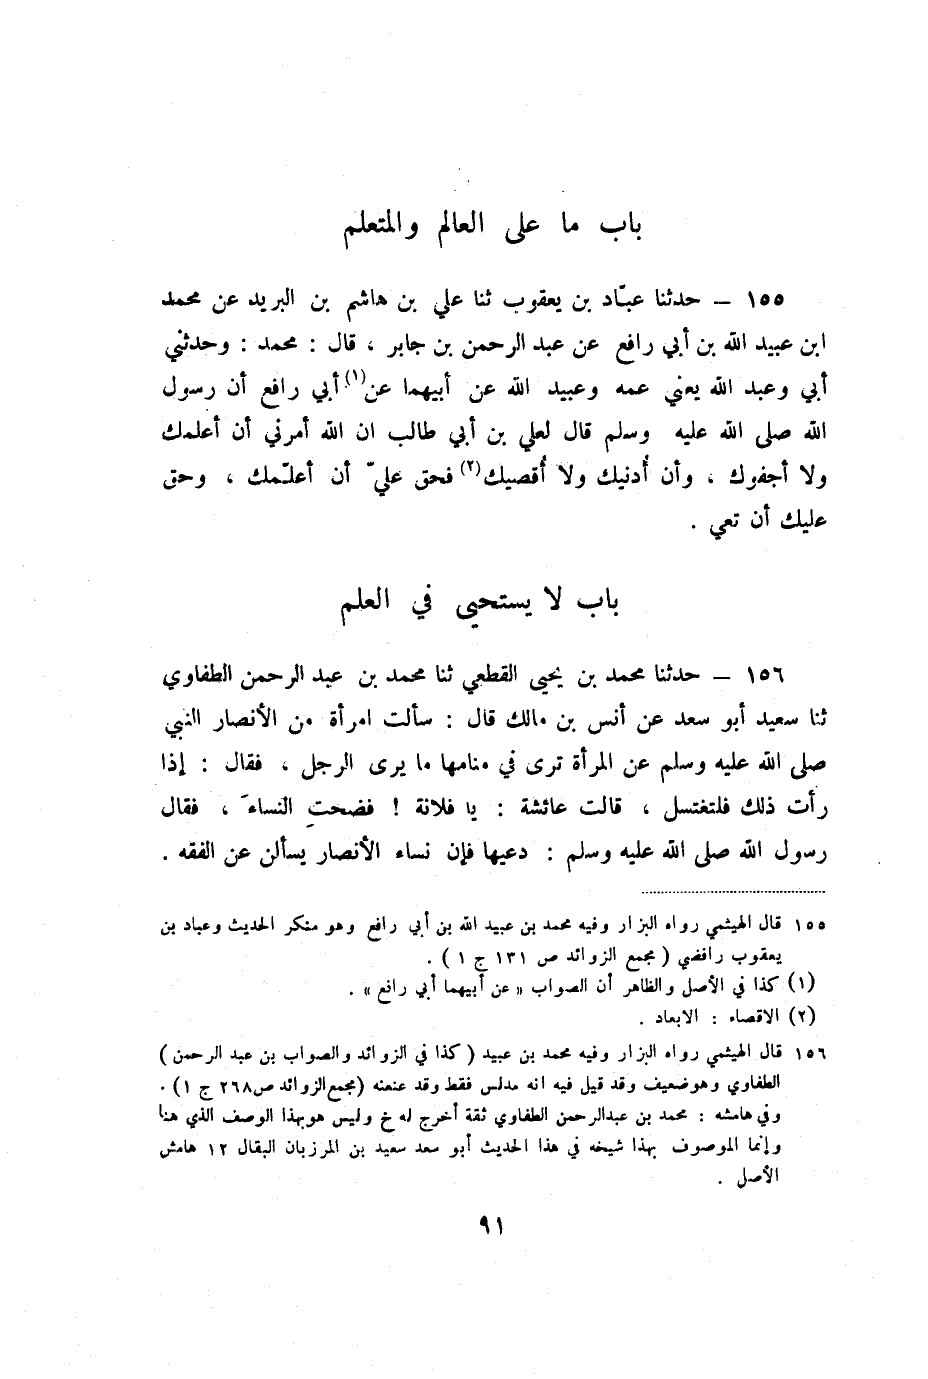 باب ما على العالم والمتعلم
١٥٥ – حدثنا عبّاد بن يعقوب ثنا علي بن هاشم بن البريد عن محمد
ابن عبيد الله بن أبي رافع عن عبد الرحمن بن جابر ، قال : محمد : وحدثني
أبي وعبد الله يعني عمه وعبيد الله عن أبيهما عن(١) أبي رافع أن رسول
الله صلى الله عليه وسلم قال لعلي بن أبي طالب ان الله أمرني أن أعلمك
ولا أجفوك ، وأن أُدنيك ولا أُقصيك(٢) فحق عليّ أن أعلّمك ، وحق
عليك أن تعي .
باب لا يستحيى في العلم
١٥٦ – حدثنا محمد بن يحيى القطعي ثنا محمد بن عبد الرحمن الطفاوي
ثنا سعيد أبو سعد عن أنس بن مالك قال : سألت امرأة من الأنصار النبي
صلى الله عليه وسلم عن المرأة ترى في منامها ما يرى الرجل ، فقال : إذا
رأت ذلك فلتغتسل ، قالت عائشة : يا فلانة ! فضحتِ النساءَ ، فقال
رسول الله صلى الله عليه وسلم : دعيها فإن نساء الأنصار يسألن عن الفقه .
١٥٥ قال الهيثمي رواه البزار وفيه محمد بن عبيد الله بن أبي رافع وهو منكر الحديث وعباد بن
يعقوب رافضي ( مجمع الزوائد ص ١٣١ ج ١ ) .
(١) كذا في الأصل والظاهر أن الصواب « عن أبيهما أبي رافع » .
(٢) الاقصاء : الابعاد .
١٥٦ قال الهيثمي رواه البزار وفيه محمد بن عبيد ( كذا في الزوائد والصواب بن عبد الرحمن )
الطفاوي وهو ضعيف وقد قيل فيه انه مدلس فقط وقد عنعنه (مجمع الزوائد ص٢٦٨ ج ١) .
وفي هامشه : محمد بن عبدالرحمن الطفاوي ثقة أخرج له خ وليس هو بهذا الوصف الذي هنا
وإنما الموصوف بهذا شيخه في هذا الحديث أبو سعد سعيد بن المرزبان البقال ١٢ هامش
الأصل .
٩١